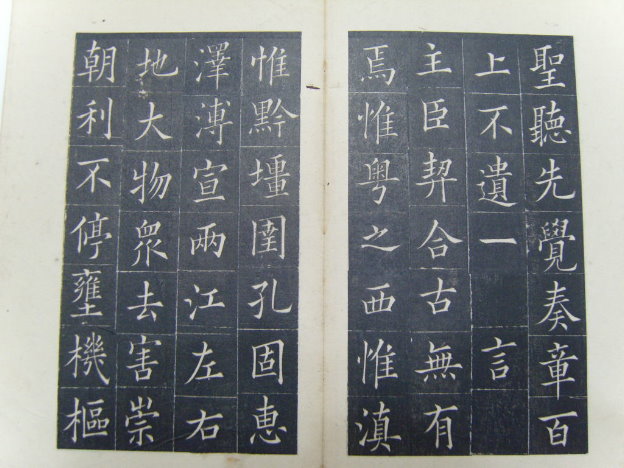 聖聽先覺奏章百
上不遺一 言
主臣契合古無有
焉惟粵之西惟滇
惟黔壃圉孔固惠
澤溥宣兩江左右
地大物衆去害崇
朝利不停壅機樞